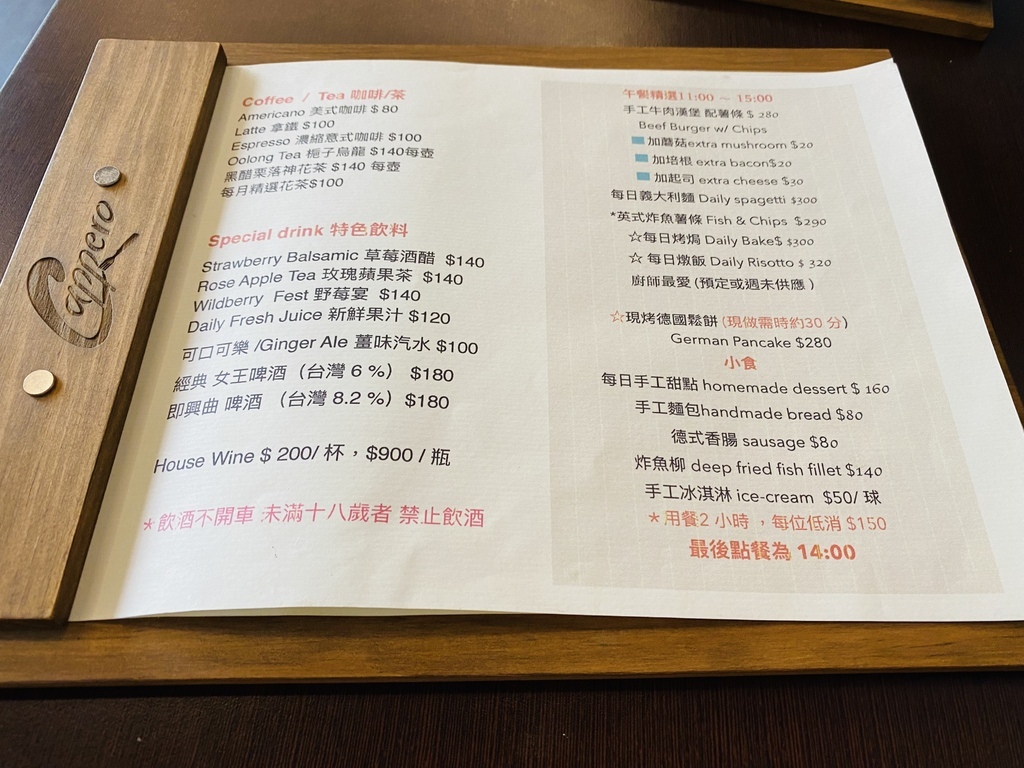 Cappero
Coffee / Tea 咖啡/茶
Americano 美式咖啡 $80
Latte 拿鐵 $100
Espresso 濃縮意式咖啡 $100
Oolong Tea 梔子烏龍 $140每壺
黑醋栗落神花茶 $140 每壺
每月精選花茶$100
Special drink 特色飲料
Strawberry Balsamic 草莓酒醋 $140
Rose Apple Tea 玫瑰蘋果茶 $140
Wildberry Fest 野莓宴 $140
Daily Fresh Juice 新鮮果汁 $120
可口可樂 /Ginger Ale 薑味汽水 $100
經典 女王啤酒（台灣 6 %） $180
即興曲 啤酒 （台灣 8.2 %）$180
House Wine $ 200/ 杯，$900 / 瓶
*飲酒不開車 未滿十八歲者 禁止飲酒
午餐精選11:00 ~ 15:00
手工牛肉漢堡 配薯條 $ 280
Beef Burger w/ Chips
加蘑菇extra mushroom $20
加培根 extra bacon$20
加起司 extra cheese $30
每日義大利麵 Daily spagetti $300
*英式炸魚薯條 Fish & Chips $290
☆每日烤焗 Daily Bake$ $300
☆ 每日燉飯 Daily Risotto $ 320
廚師最愛 (預定或週末供應 )
☆現烤德國鬆餅 (現做需時約30 分)
German Pancake $280
小食
每日手工甜點 homemade dessert $ 160
手工麵包handmade bread $80
德式香腸 sausage $80
炸魚柳 deep fried fish fillet $140
手工冰淇淋 ice-cream $50/ 球
*用餐2 小時 ，每位低消 $150
最後點餐為 14:00